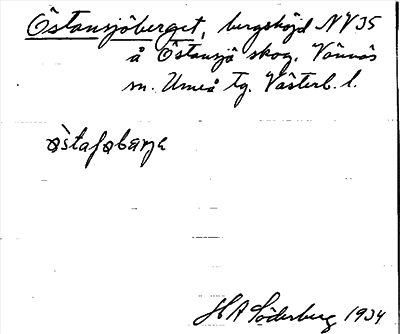 Östansjöberget, bergshöjd NV35
å Östansjö skog, Vännäs
sn. Umeå tg. Västerb. l.
H A Söderberg 1934